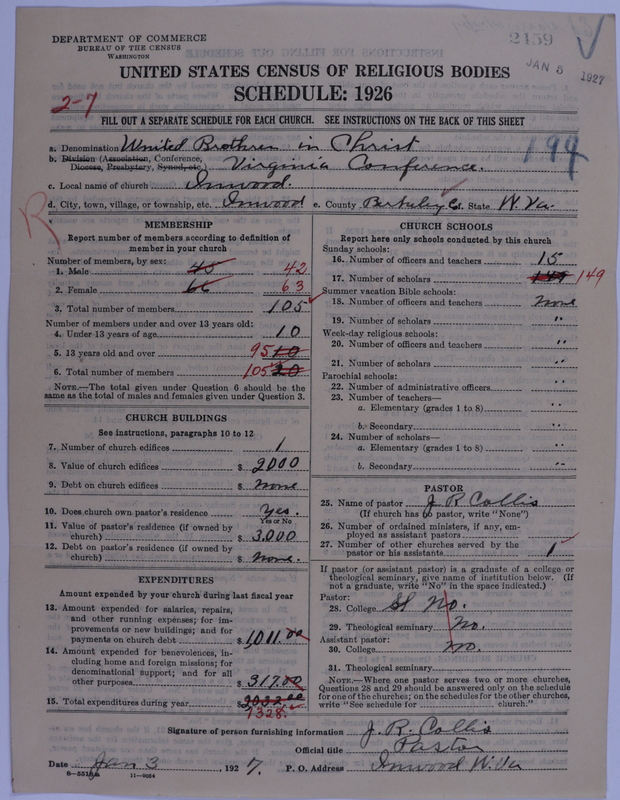 DEPARTMENT OF COMMERCE
BUREAU OF THE CENSUS
WASHINGTON
2159
JAN 5 1927
UNITED STATES CENSUS OF RELIGIOUS BODIES
SCHEDULE: 1926
2-7
FILL OUT A SEPARATE SCHEDULE FOR EACH CHURCH. SEE INSTRUCTIONS ON THE BACK OF THIS SHEET
a. Denomination United Brothren in Christ
199
b. Division (Association, Conference, Diocese, Presbytery, Synod, etc.) Virginia Conference.
c. Local name of church Inwood.
d. City, town, village, or township, etc. Inwood e. County Berkeley Co. State W. Va.
R
MEMBERSHIP
Report number of members according to definition of
member in your church
Number of members, by sex:
1. Male 45 42
2. Female 66 63
3. Total number of members 105
Number of members under and over 13 years old:
4. Under 13 years of age 10
5. 13 years old and over 95 10
6. Total number of members 105 20
NOTE.—The total given under Question 6 should be
same as the total of males and females given under Question 3.
CHURCH BUILDINGS
See instructions, paragraphs 10 to 12
7. Number of church edifices 1
8. Value of church edifices $ 2000
9. Debt on church edifices $ None
10. Does church own pastor's residence Yes.
Yes or No
11. Value of pastor's residence (if owned by
church) $ 3,000
12. Debt on pastor's residence (if owned by
church) $ None.
EXPENDITURES
Amount expended by your church during last fiscal year
13. Amount expended for salaries, repairs,
and other running expenses; for im-
provements or new buildings; and for
payments on church debt $ 1,011.00
14. Amount expended for benevolences, in-
cluding home and foreign missions; for
denominational support; and for all
other purposes $ 317.00
15. Total expenditures during year $
1328.
CHURCH SCHOOLS
Report here only schools conducted by this church
Sunday schools:
16. Number of officers and teachers 15
17. Number of scholars 149 149
Summer vacation Bible schools:
18. Number of officers and teachers None
19. Number of scholars "
Week-day religious schools:
20. Number of officers and teachers "
21. Number of scholars "
Parochial schools:
22. Number of administrative officers "
23. Number of teachers—
a. Elementary (grades 1 to 8) "
b. Secondary "
24. Number of scholars—
a. Elementary (grades 1 to 8) "
b. Secondary "
PASTOR
25. Name of pastor J. R. Collis
(If church has no pastor, write "None")
26. Number of ordained ministers, if any, em-
ployed as assistant pastors
27. Number of other churches served by the
pastor or his assistants 1
If pastor (or assistant pastor) is a graduate of a college or
theological seminary, give name of institution below. (If
not a graduate, write "No" in the space indicated.)
Pastor:
28. College No.
29. Theological seminary No.
Assistant pastor:
30. College No.
31. Theological seminary
NOTE.—Where one pastor serves two or more churches,
Questions 28 and 29 should be answered only on the schedule
for one of the churches; on the schedules for the other churches,
write "See schedule for church."
Signature of person furnishing information J. R. Collis
Official title Pastor
Date Jan 3, 1927. P. O. Address Inwood W. Va
11—9054